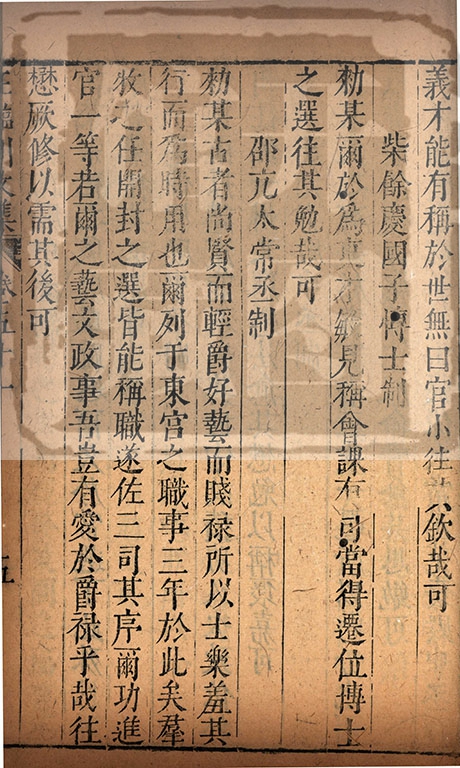 義才能有稱於世無曰官小往欽哉可
柴餘慶國子博士制
勑某爾於為吏才敏見稱會課有司當得遷位博士
之選往其勉哉可
邵亢太常丞制
勑某古者尚賢而輕爵好藝而賤祿所以士樂羞其
行而為時用也爾列于東宮之職事三年於此矣羣
牧之任開封之選皆能稱職遂佐三司其序爾功進
官一等若爾之藝文政事吾豈有愛於爵祿乎哉往
懋厥修以需其後可
王臨川文集 卷五十一 五